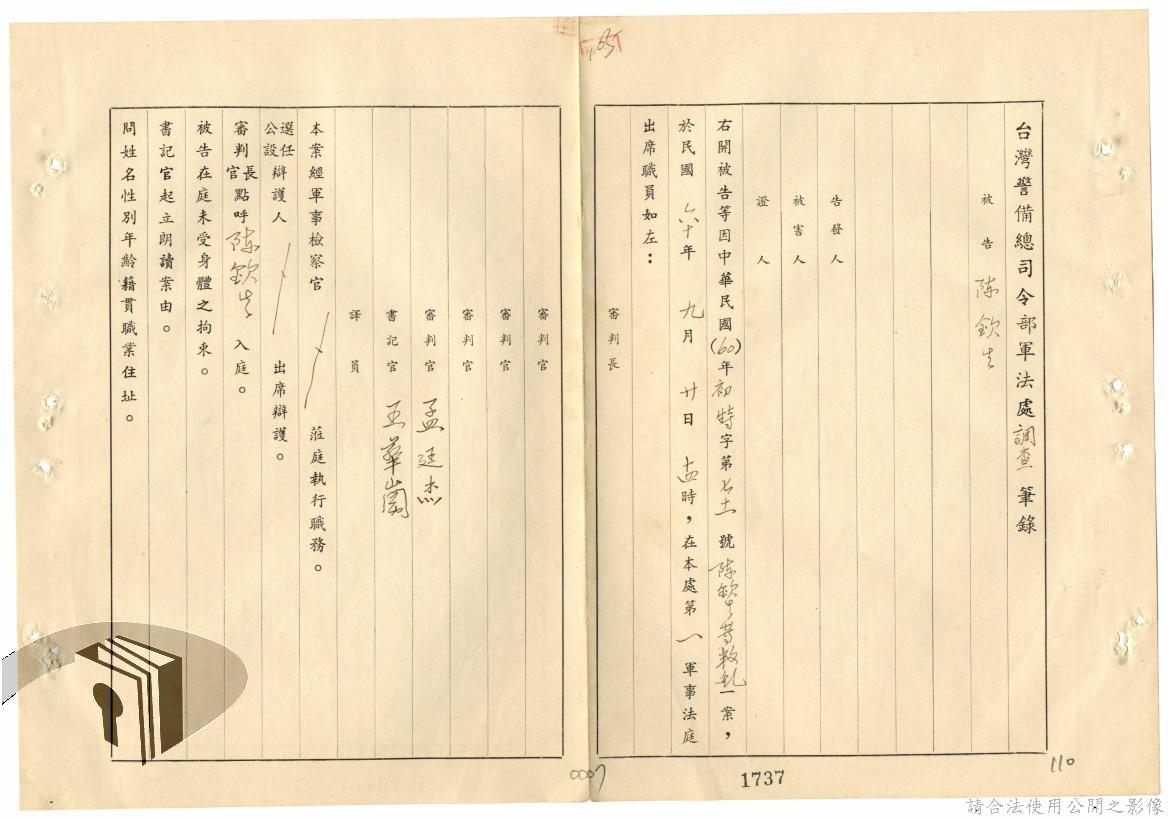 台灣警備總司令部軍法處調查筆錄
被告 陈欽生
告發人
被害人
證人
右開被告等因中華民國(60)年初特字第七十一號陈欽生等叛乱一案，
於民國六十年九月廿日十四時，在本處第一軍事法庭
出席職員如左：
審判長
審判官
審判官
審判官
審判官 孟廷杰
書記官 王華崗
譯員
本案經軍事檢察官 蒞庭執行職務。
選任
公設辯護人 出席辯護。
審判長
官點呼陈欽生入庭。
被告在庭未受身體之拘束。
書記官起立朗讀案由。
問姓名性別年齡籍貫職業住址。
1737
110
0007
請合法使用公開之影像